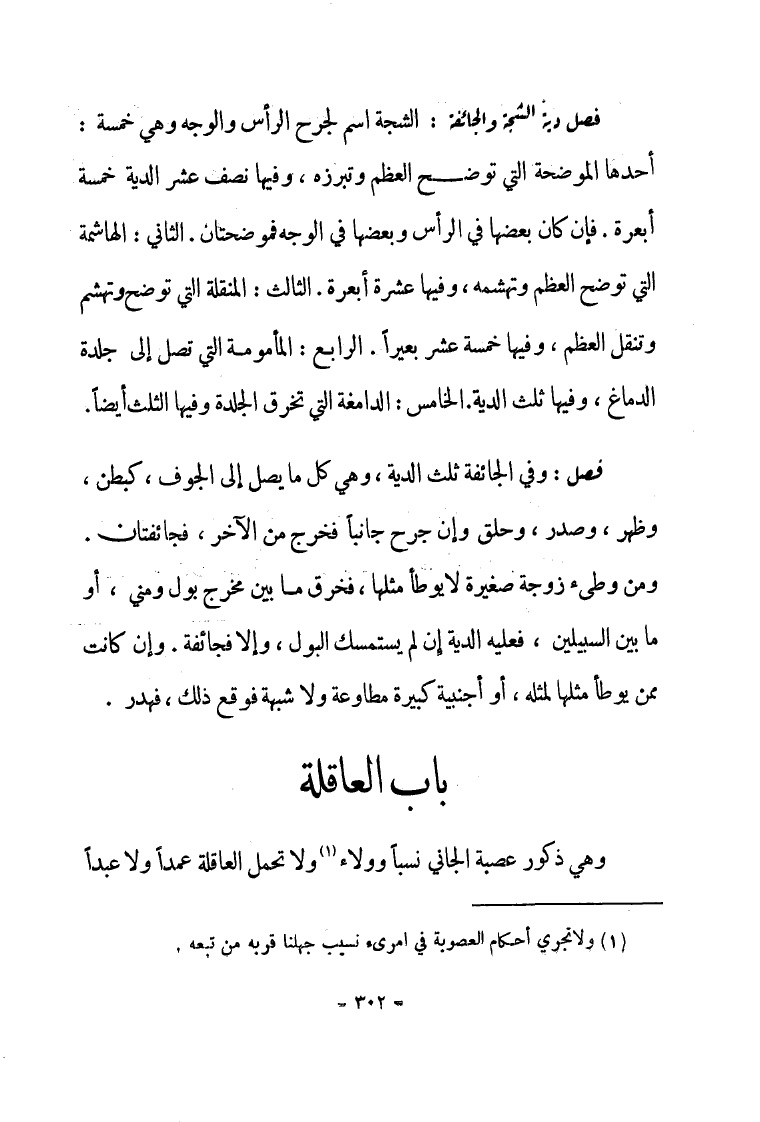 فصل دية الشجة والجائفة : الشجة اسم لجرح الرأس والوجه وهي خمسة :
أحدها الموضحة التي توضــح العظم وتبرزه ، وفيها نصف عشر الدية خمسة
أبعرة . فإن كان بعضها في الرأس وبعضها في الوجه فموضحتان . الثاني : الهاشمة
التي توضح العظم وتهشمه ، وفيها عشرة أبعرة . الثالث : المنقلة التي توضح وتهشم
وتنقل العظم ، وفيها خمسة عشر بعيراً . الرابع : المأمومة التي تصل إلى جلدة
الدماغ ، وفيها ثلث الدية. الخامس : الدامغة التي تخرق الجلدة وفيها الثلث أيضاً.
فصل : وفي الجائفة ثلث الدية ، وهي كل ما يصل إلى الجوف ، كبطن ،
وظهر ، وصدر ، وحلق وإن جرح جانباً فخرج من الآخر ، فجائفتان .
ومن وطىء زوجة صغيرة لا يوطأ مثلها ، فخرق ما بين مخرج بول ومني ، أو
ما بين السبيلين ، فعليه الدية إن لم يستمسك البول ، وإلا فجائفة . وإن كانت
ممن يوطأ مثلها لمثله ، أو أجنبية كبيرة مطاوعة ولا شبهة فوقع ذلك ، فهدر .
باب العاقلة
وهي ذكور عصبة الجاني نسباً وولاء (١) ولا تحمل العاقلة عمداً ولا عبداً
(١) ولا تجري أحكام العصوبة في امرىء نسيب جهلنا قربه من تبعه .
- ٣٠٢ -